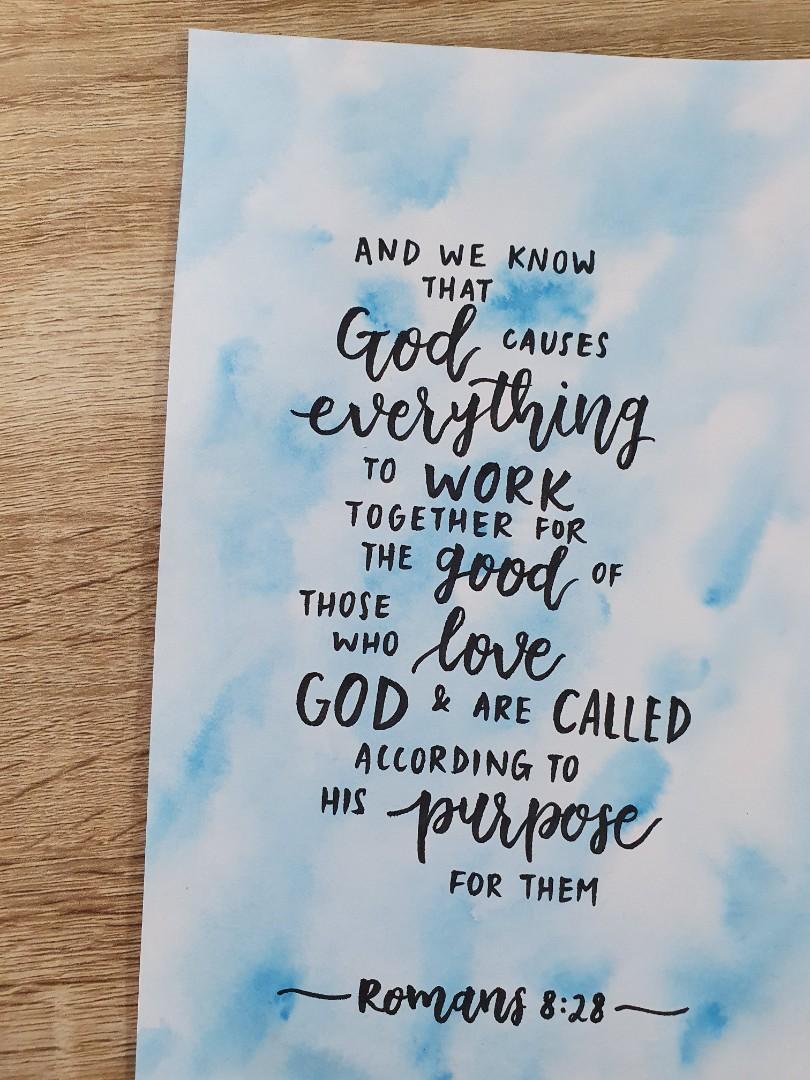 AND WE KNOW
THAT
God CAUSES
everything
TO WORK
TOGETHER FOR
THE good OF
THOSE
WHO love
GOD & ARE CALLED
ACCORDING TO
HIS purpose
FOR THEM
Romans 8:28